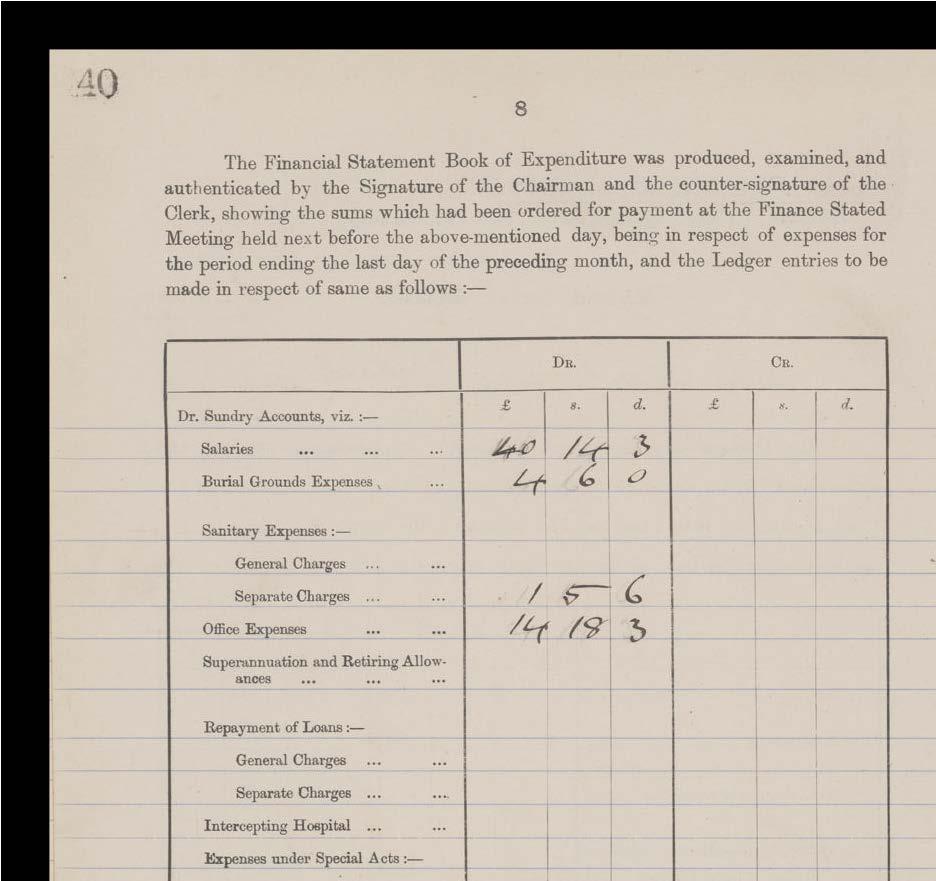 40
8
The Financial Statement Book of Expenditure was produced, examined, and
authenticated by the Signature of the Chairman and the counter-signature of the
Clerk, showing the sums which had been ordered for payment at the Finance Stated
Meeting held next before the above-mentioned day, being in respect of expenses for
the period ending the last day of the preceding month, and the Ledger entries to be
made in respect of same as follows :—
DR. CR.
Dr. Sundry Accounts, viz. :— £ s. d. £ s. d.
Salaries ... ... ... 40 14 3
Burial Grounds Expenses ... 4 6 0
Sanitary Expenses :—
General Charges ... ...
Separate Charges ... ... 1 5 6
Office Expenses ... ... 14 18 3
Superannuation and Retiring Allow-
ances ... ... ...
Repayment of Loans :—
General Charges ... ...
Separate Charges ... ...
Intercepting Hospital ... ...
Expenses under Special Acts :—